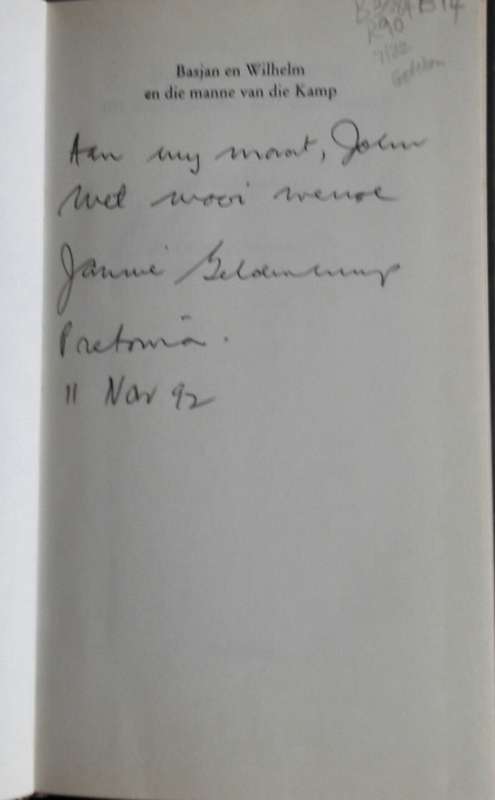 R90
7/22
Basjan en Wilhelm
en die manne van die Kamp
Aan my maat, John
Met mooi wense
Jannie Geldenhuys
Pretoria.
11 Nov 92